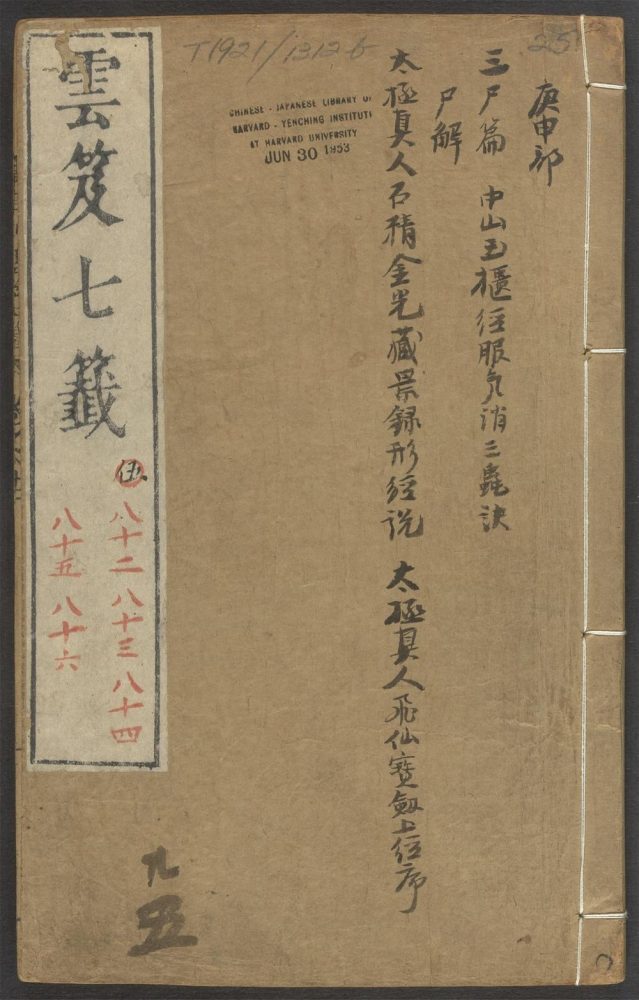 25
庚申部
三尸篇 中山玉櫃經服氣消三蟲訣
尸解
太極真人石精金光藏景録形經説 太極真人飛仙寶劍上經序
T1921/1312b
CHINESE - JAPANESE LIBRARY OF
HARVARD - YENCHING INSTITUTE
AT HARVARD UNIVERSITY
JUN 30 1953
雲笈七籤
伍
八十二 八十三 八十四
八十五 八十六
九
五